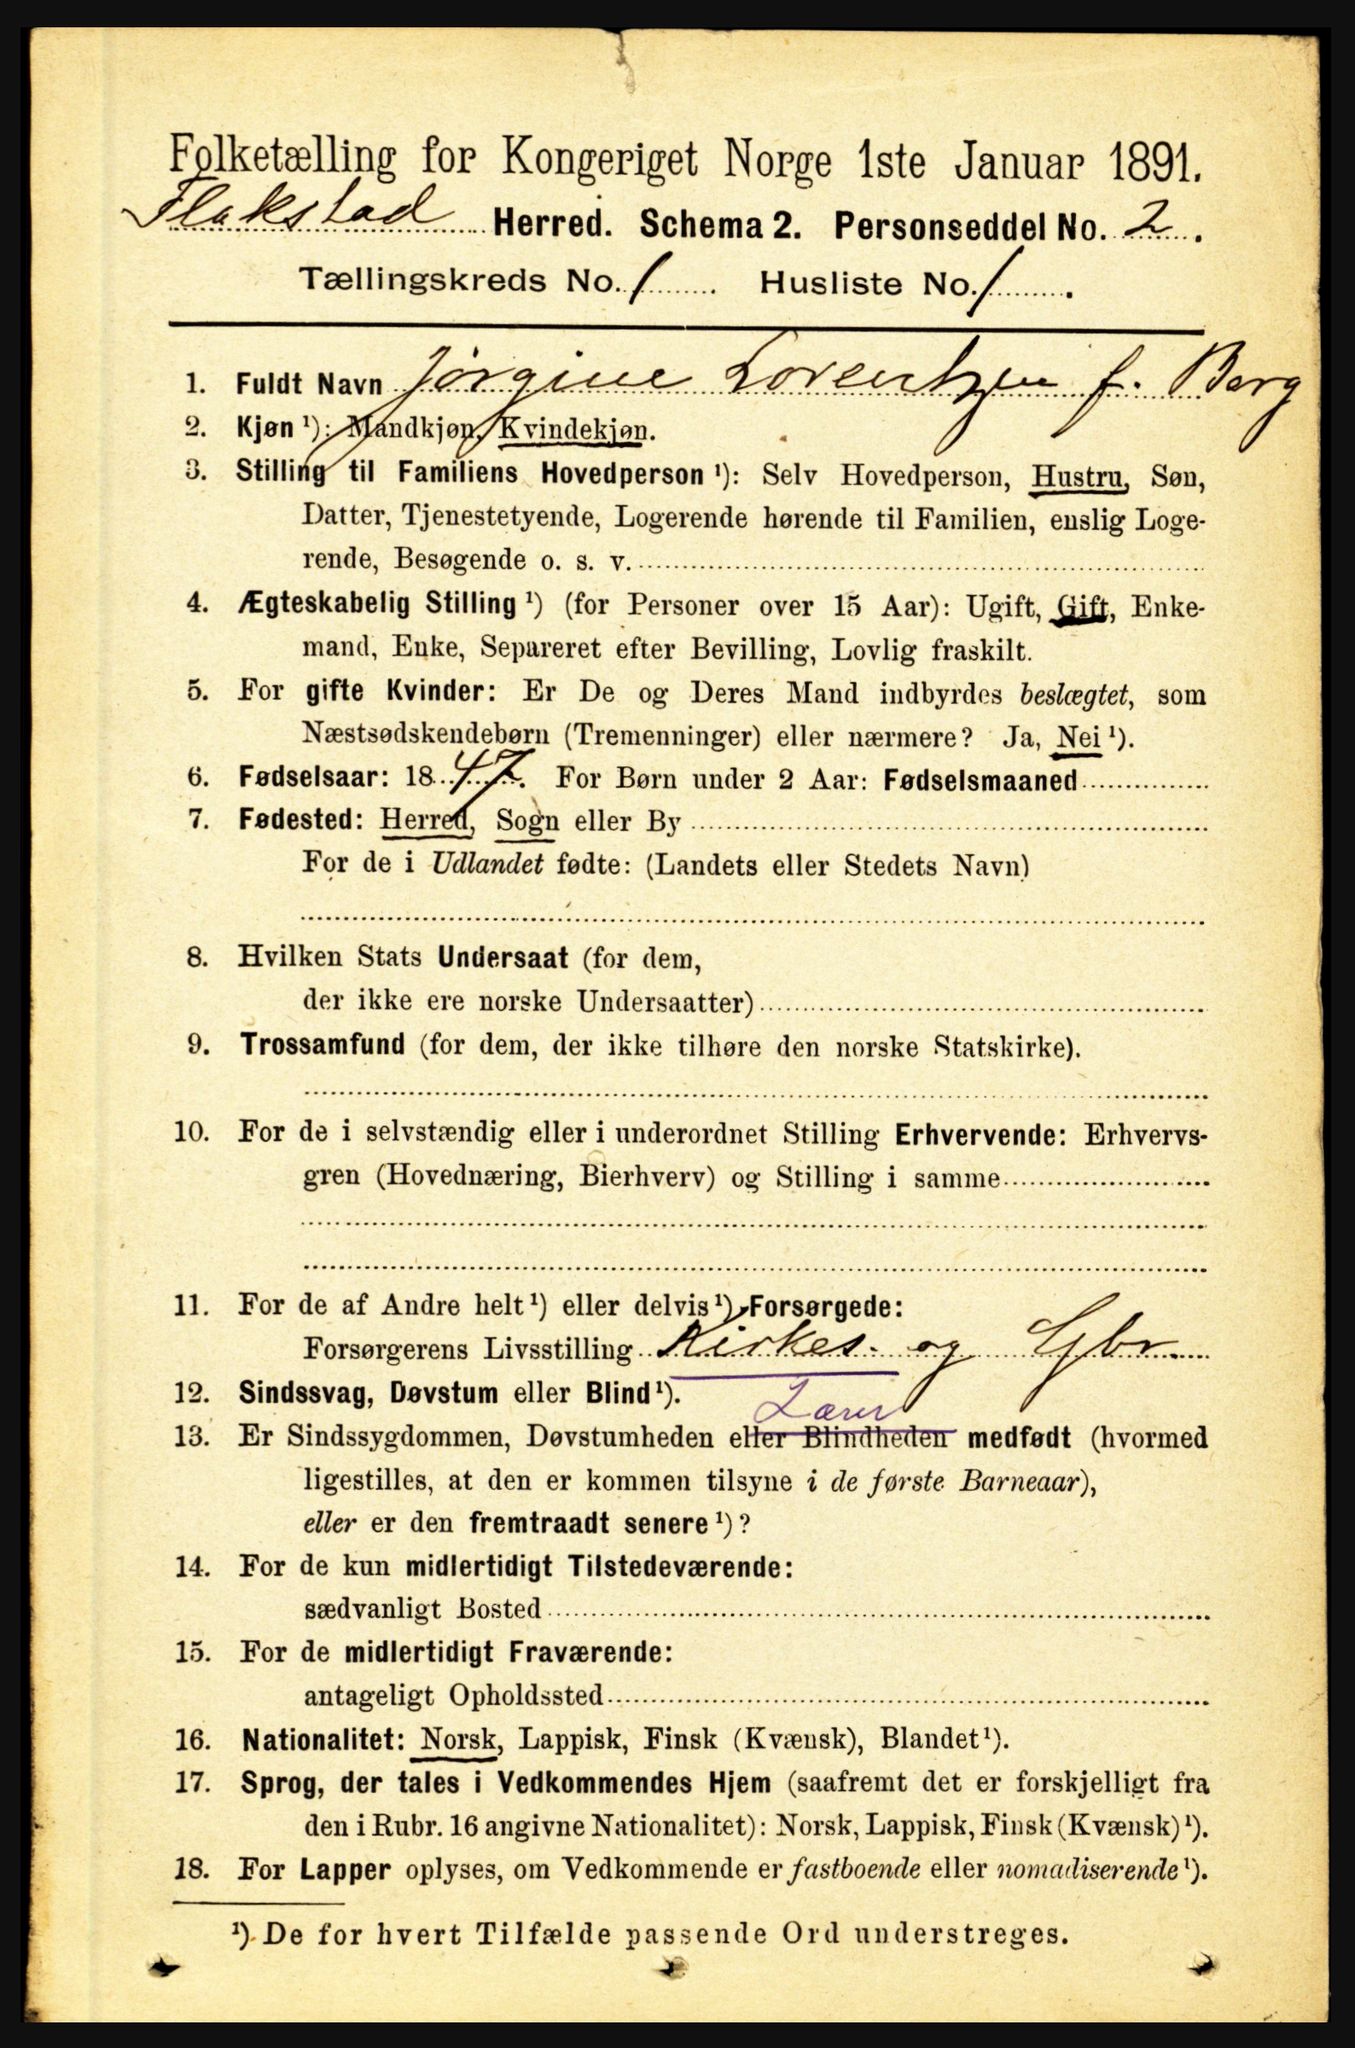 Folketælling for Kongeriget Norge 1ste Januar 1891.
Flakstad Herred. Schema 2. Personseddel No. 2.
Tællingskreds No. 1 Husliste No. 1.
1. Fuldt Navn Jørgine Lorentzen f. Berg
2. Kjøn ¹): Mandkjøn, Kvindekjøn.
3. Stilling til Familiens Hovedperson ¹): Selv Hovedperson, Hustru, Søn,
Datter, Tjenestetyende, Logerende hørende til Familien, enslig Loge-
rende, Besøgende o. s. v.
4. Ægteskabelig Stilling ¹) (for Personer over 15 Aar): Ugift, Gift, Enke-
mand, Enke, Separeret efter Bevilling, Lovlig fraskilt.
5. For gifte Kvinder: Er De og Deres Mand indbyrdes beslægtet, som
Næstsødskendebørn (Tremenninger) eller nærmere? Ja, Nei ¹).
6. Fødselsaar: 1847. For Børn under 2 Aar: Fødselsmaaned
7. Fødested: Herred, Sogn eller By
For de i Udlandet fødte: (Landets eller Stedets Navn)
8. Hvilken Stats Undersaat (for dem,
der ikke ere norske Undersaatter)
9. Trossamfund (for dem, der ikke tilhøre den norske Statskirke).
10. For de i selvstændig eller i underordnet Stilling Erhvervende: Erhvervs-
gren (Hovednæring, Bierhverv) og Stilling i samme
11. For de af Andre helt ¹) eller delvis ¹) Forsørgede:
Forsørgerens Livsstilling Kirkes. og Gbr.
12. Sindssvag, Døvstum eller Blind ¹). Lærer
13. Er Sindssygdommen, Døvstumheden eller Blindheden medfødt (hvormed
ligestilles, at den er kommen tilsyne i de første Barneaar),
eller er den fremtraadt senere ¹)?
14. For de kun midlertidigt Tilstedeværende:
sædvanligt Bosted
15. For de midlertidigt Fraværende:
antageligt Opholdssted
16. Nationalitet: Norsk, Lappisk, Finsk (Kvænsk), Blandet ¹).
17. Sprog, der tales i Vedkommendes Hjem (saafremt det er forskjelligt fra
den i Rubr. 16 angivne Nationalitet): Norsk, Lappisk, Finsk (Kvænsk) ¹).
18. For Lapper oplyses, om Vedkommende er fastboende eller nomadiserende ¹).
¹) De for hvert Tilfælde passende Ord understreges.